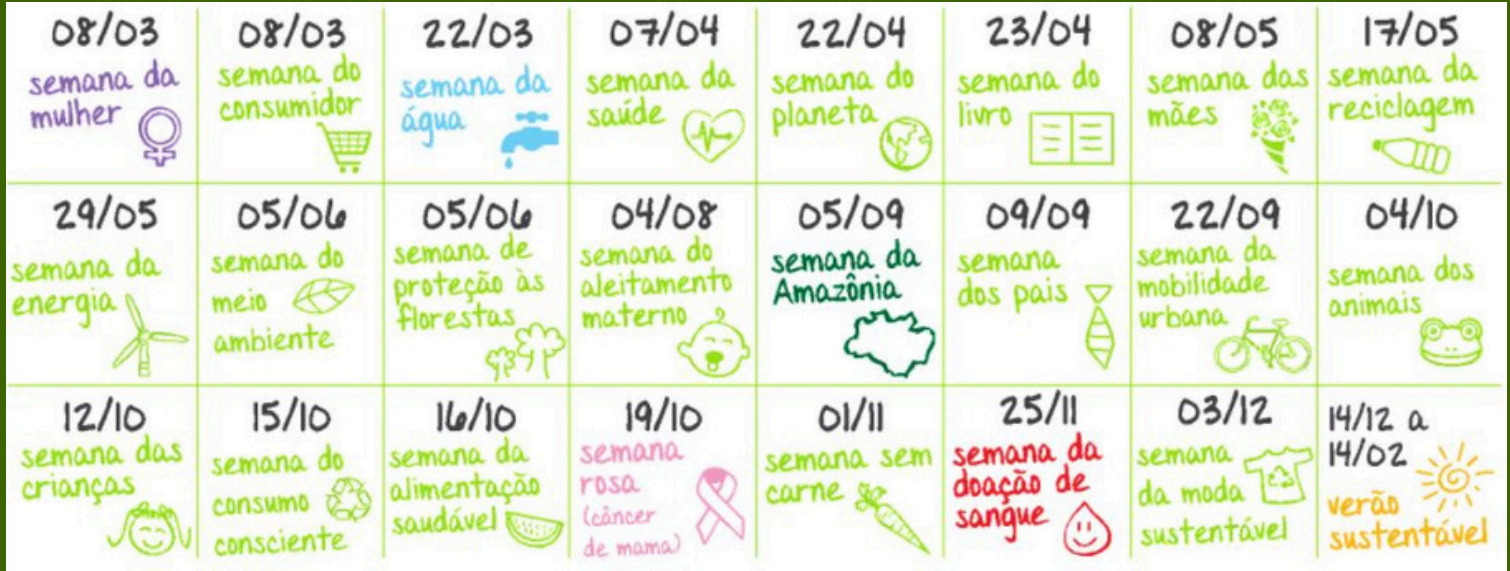 08/03
semana da
mulher
08/03
semana do
consumidor
22/03
semana da
água
07/04
semana da
saúde
22/04
semana do
planeta
23/04
semana do
livro
08/05
semana das
mães
17/05
semana da
reciclagem
29/05
semana da
energia
05/06
semana do
meio
ambiente
05/06
semana de
proteção às
florestas
04/08
semana do
aleitamento
materno
05/09
semana da
Amazônia
09/09
semana
dos pais
22/09
semana da
mobilidade
urbana
04/10
semana dos
animais
12/10
semana das
crianças
15/10
semana do
consumo
consciente
16/10
semana da
alimentação
saudável
19/10
semana
rosa
(câncer
de mama)
01/11
semana sem
carne
25/11
semana da
doação de
sangue
03/12
semana
da moda
sustentável
14/12 a
14/02
verão
sustentável